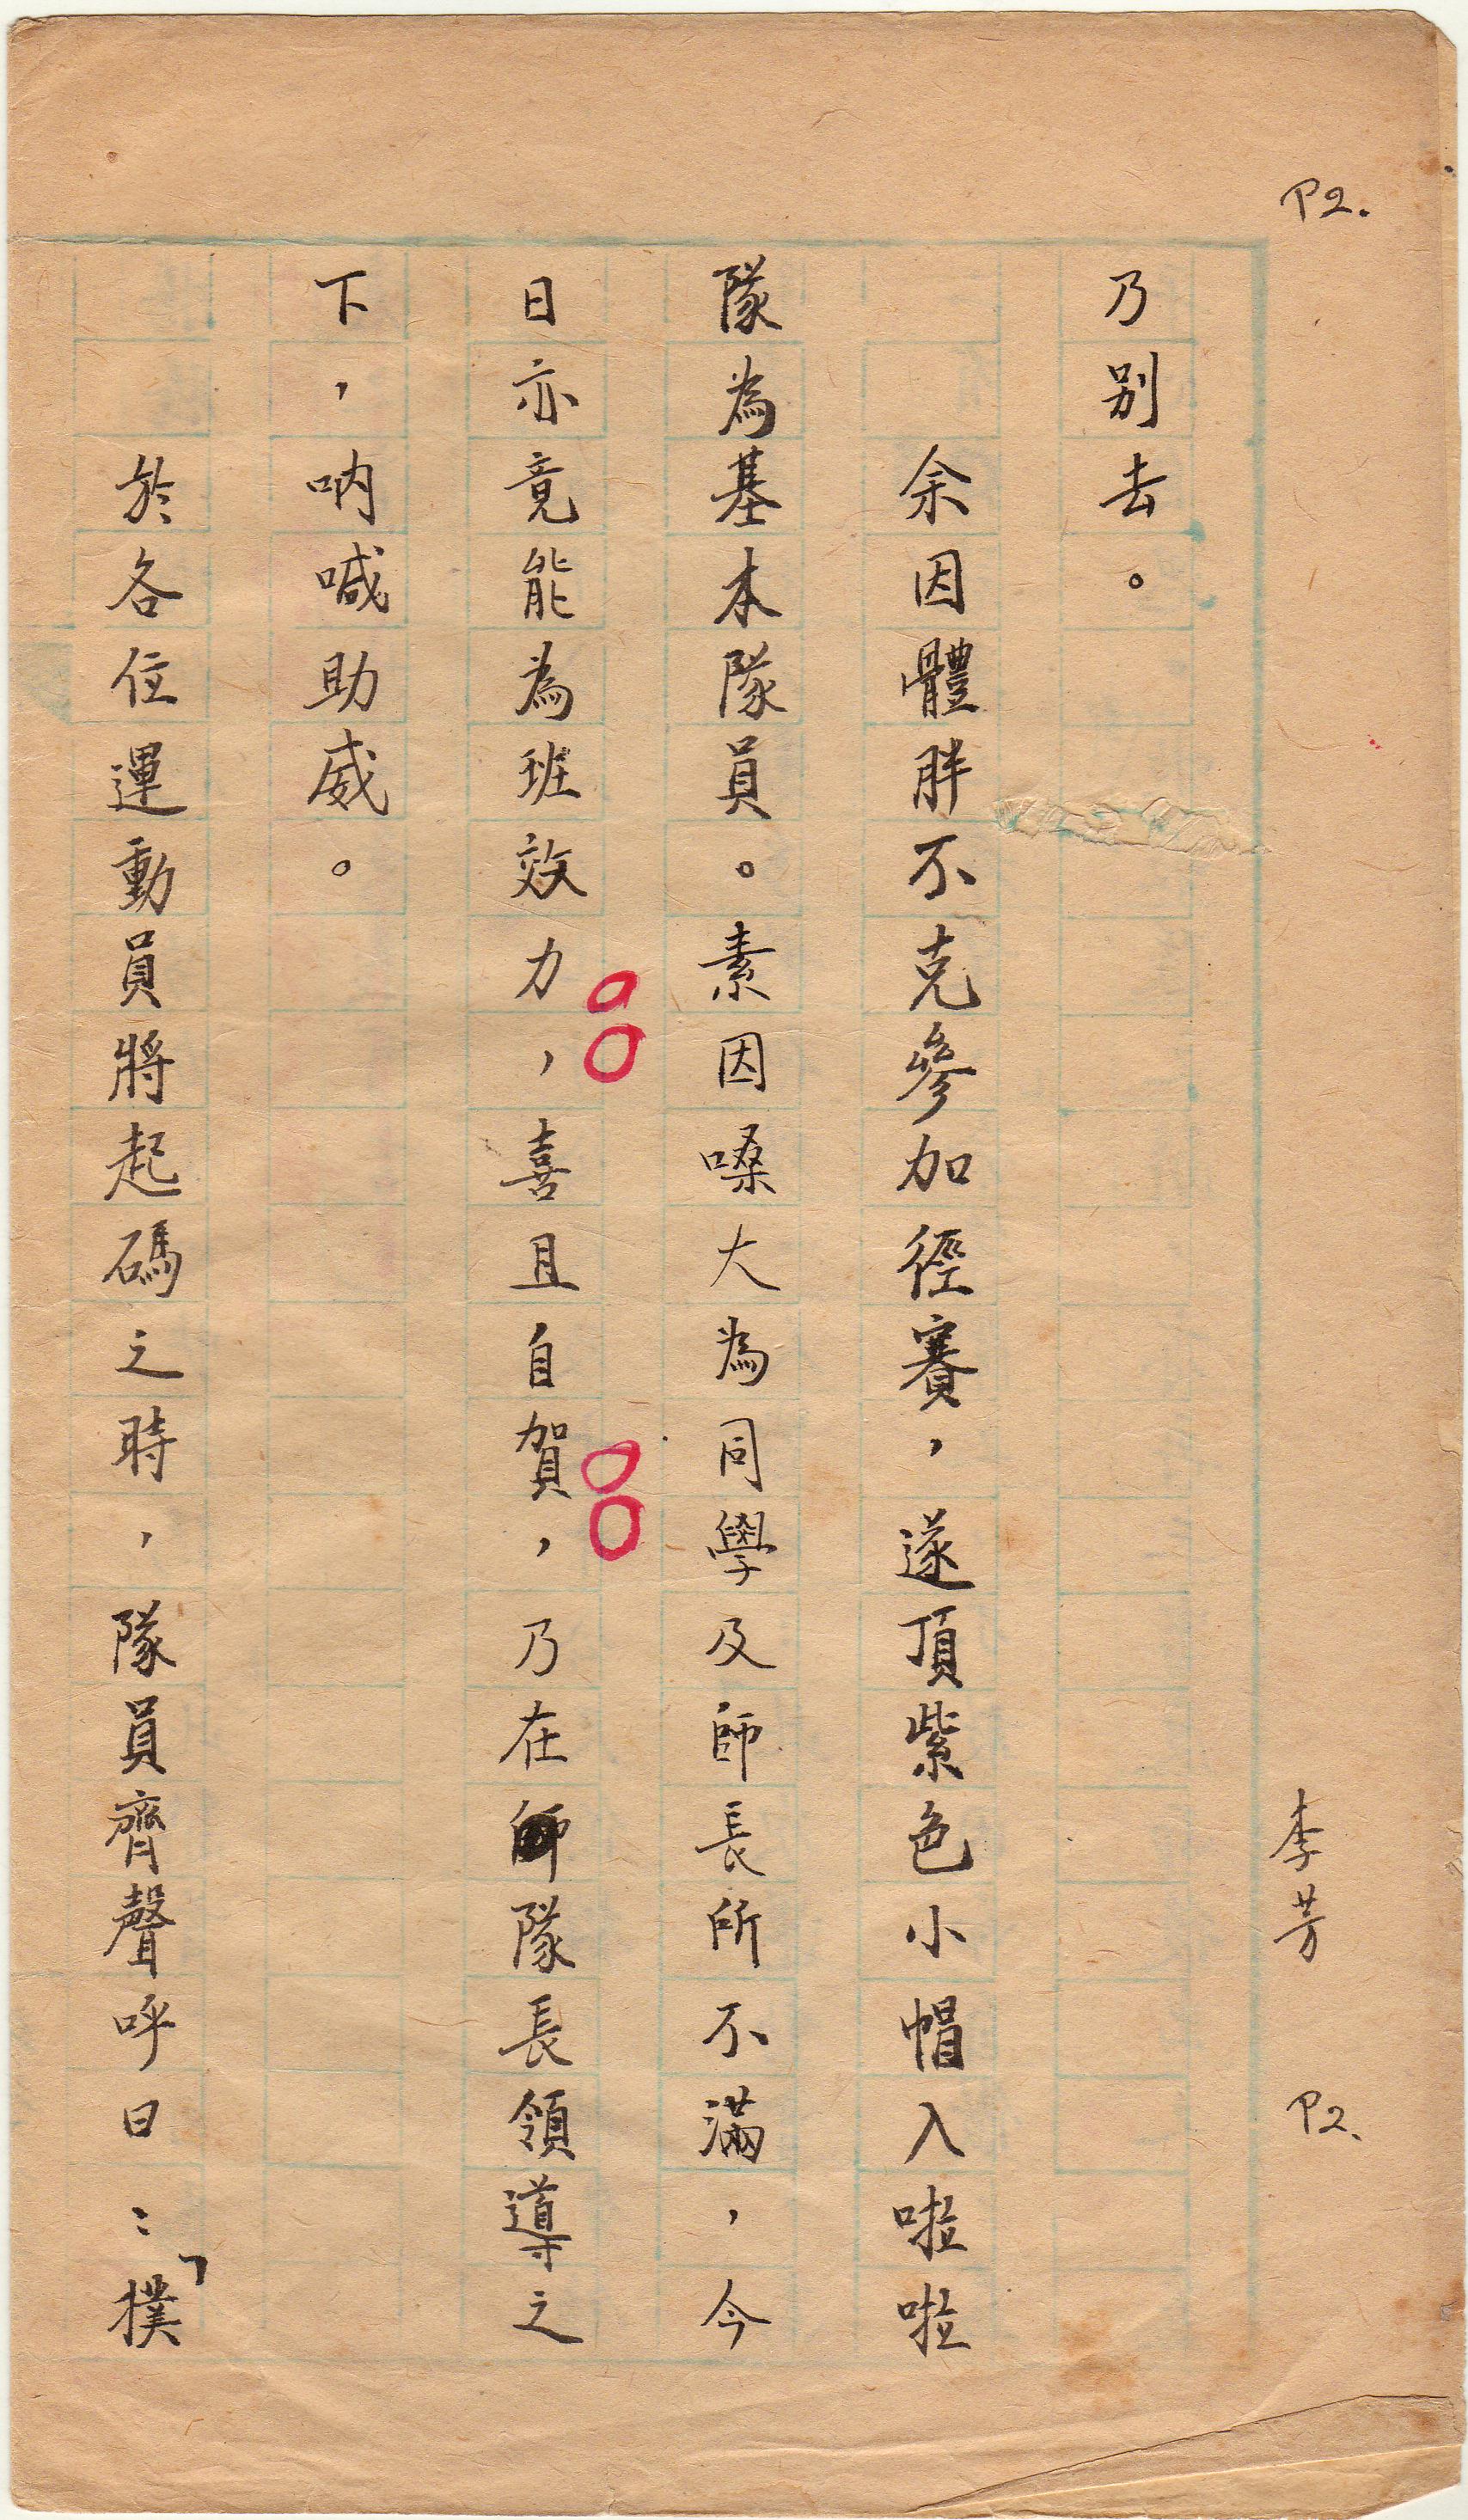 P2.
李芳 P2.
乃别去。
余因體胖不克參加徑賽，遂頂紫色小帽入啦啦
隊為基本隊員。素因嗓大為同學及師長所不滿，今
日亦竟能為班效力，喜且自賀，乃在隊長領導之
下，吶喊助威。
於各位運動員將起碼之時，隊員齊聲呼曰：「樸